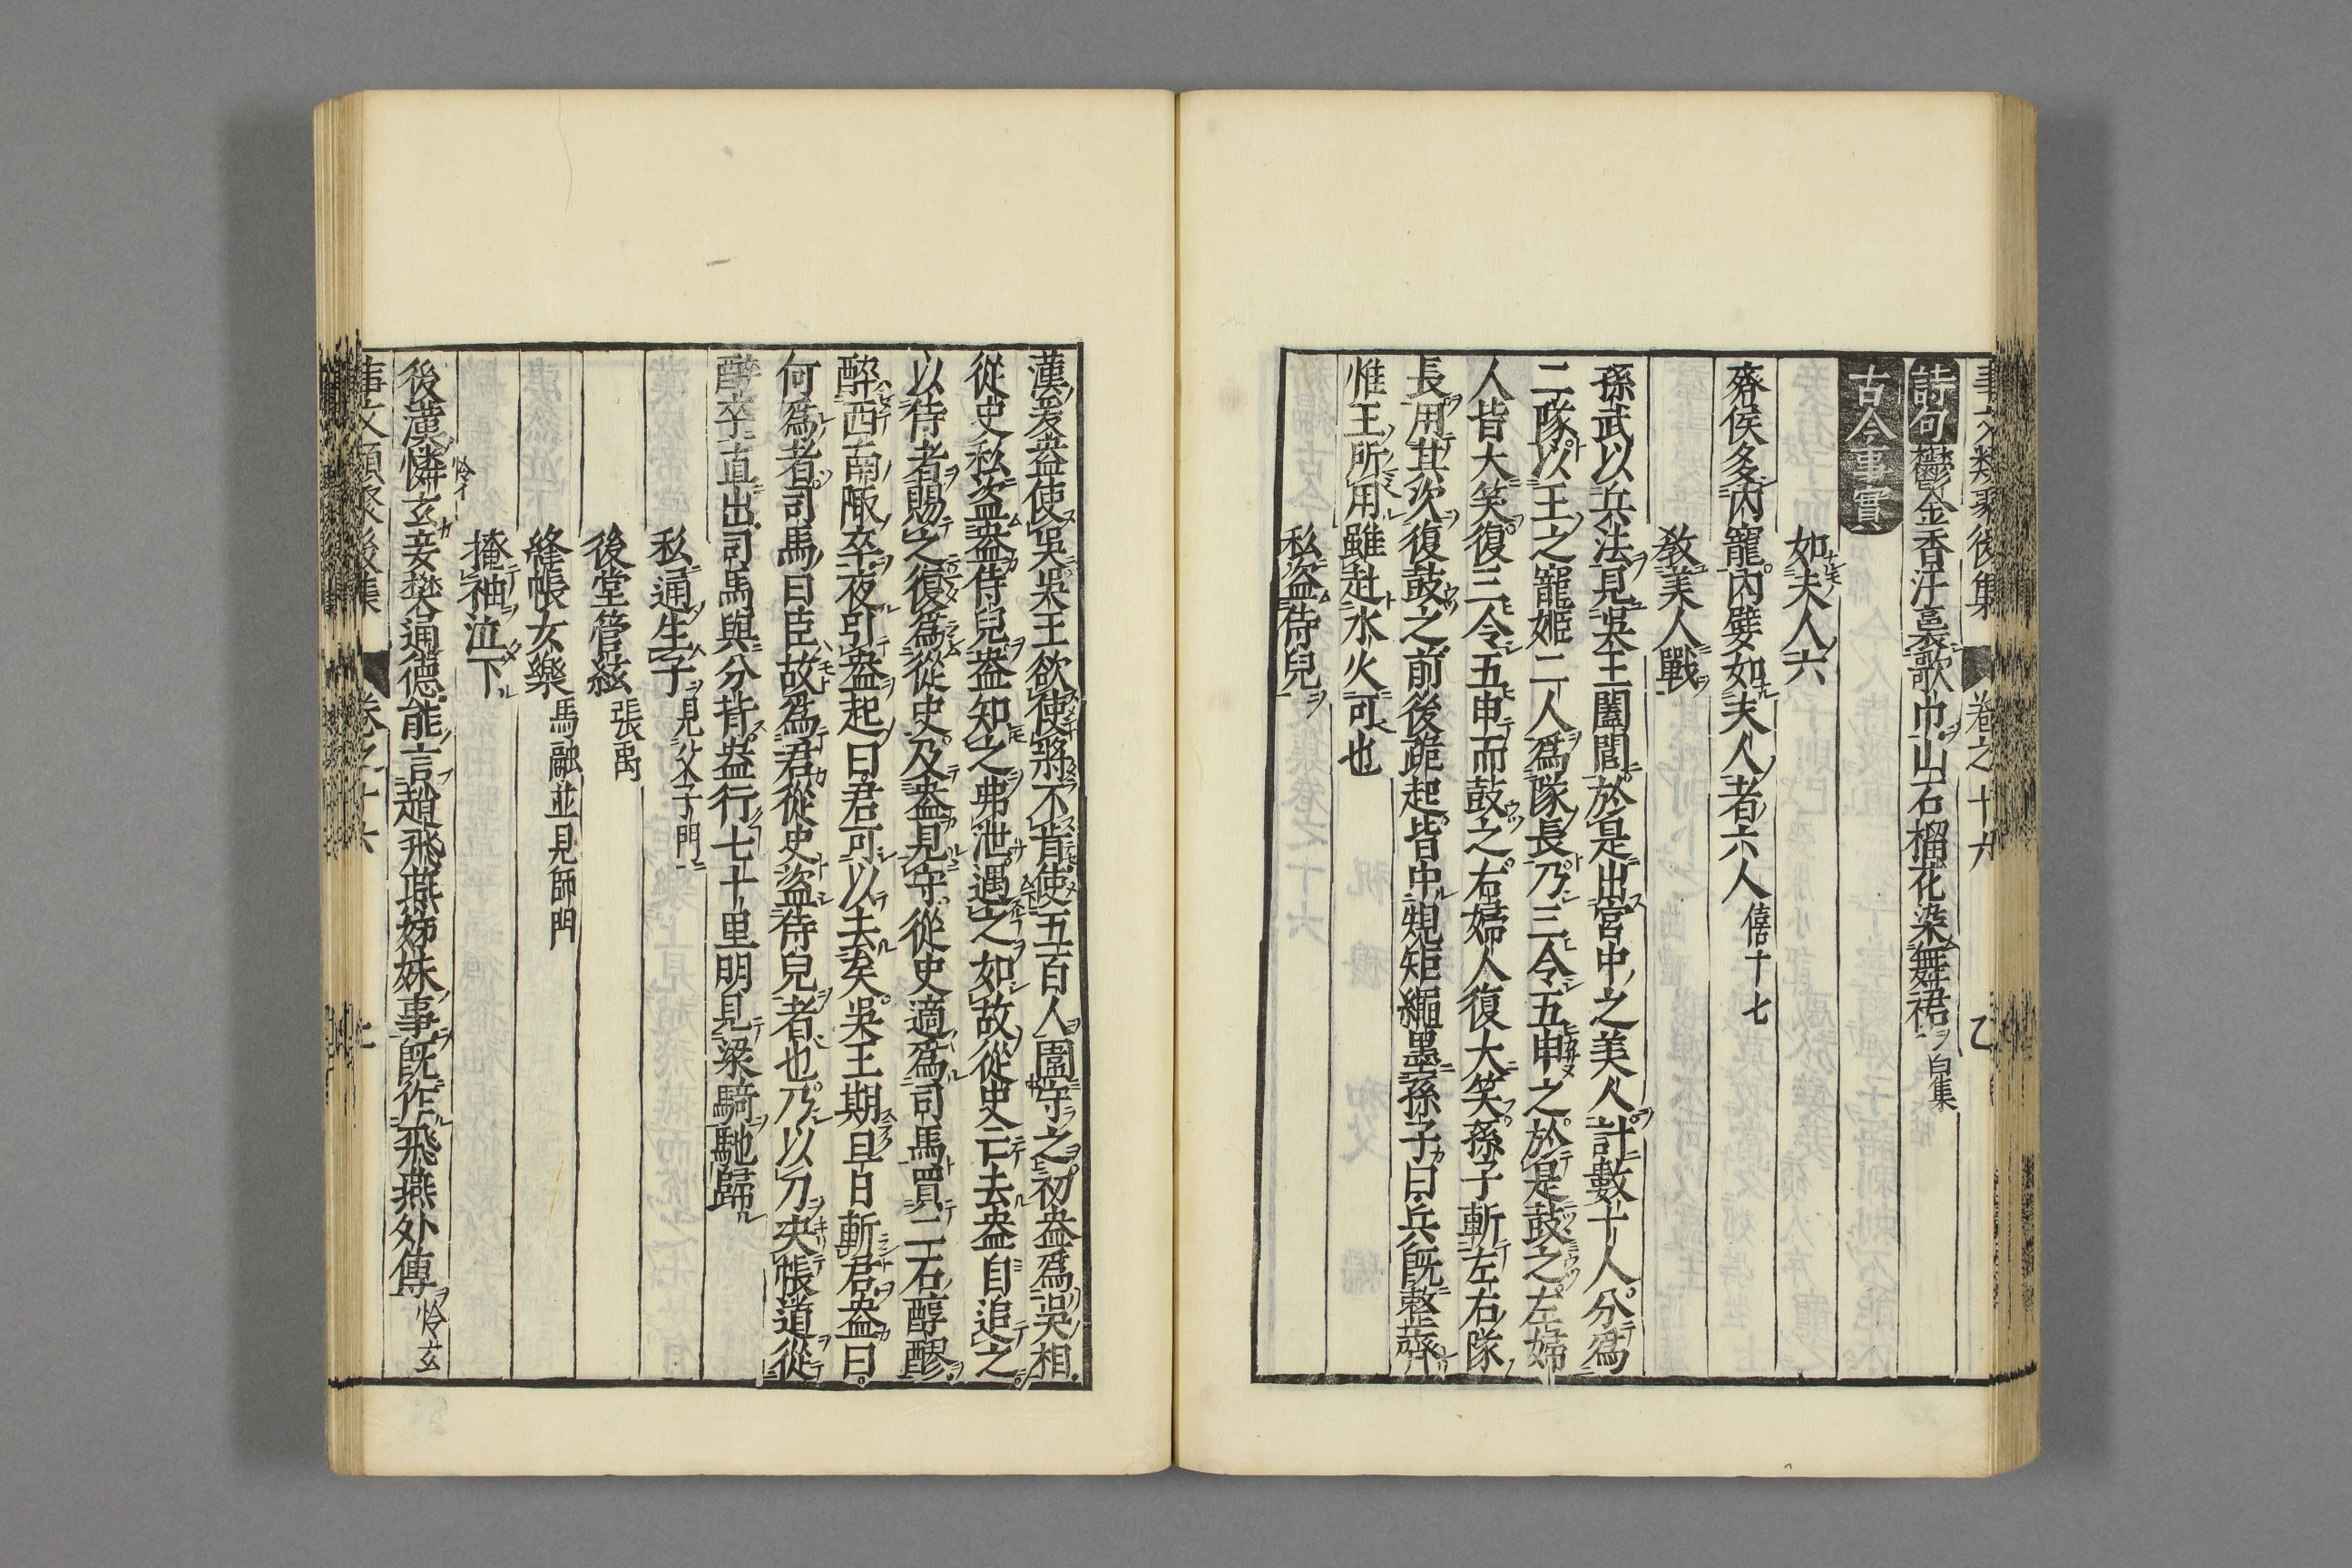 事文類聚後集 卷之十六 乙
詩句 鬱金香汗裛歌巾山石榴花染舞裙 白集
古今事實
如夫人六
齊侯多內寵內嬖如夫人者六人 僖十七
教美人戰
孫武以兵法見吳王闔閭於是出宮中之美人計數十人分爲
二隊以王之寵姬二人爲隊長乃三令五申之於是鼓之左婦
人皆大笑復三令五申而鼓之右婦人復大笑孫子斬左右隊
長用其次復鼓之前後跪起皆中規矩繩墨孫子曰兵既整齊
惟王所用雖赴水火可也
私盜侍兒
漢爰盎使吳吳王欲使將不肯使五百人圍守之初盎爲吳相
從史私盜盎侍兒盎知之弗泄遇之如故從史亡去盎自追之
以侍者賜之復爲從史及盎見守從史適爲司馬買二石醇醪
醉西南陬卒夜引盎起曰君可以去矣吳王期旦日斬君盎曰
何爲者司馬曰臣故爲君從史盜侍兒者也乃以刀夾帳道從
醉卒直出司馬與分背盎行七十里明見梁騎馳歸
私通生子 見父子門
後堂管絃 張禹
絳帳女樂 馬融並見師門
掩袖泣下
後漢憐玄妾樊通德能言趙飛燕姊妹事既作飛燕外傳 怜玄
怜イ
事文類聚後集 卷之十六